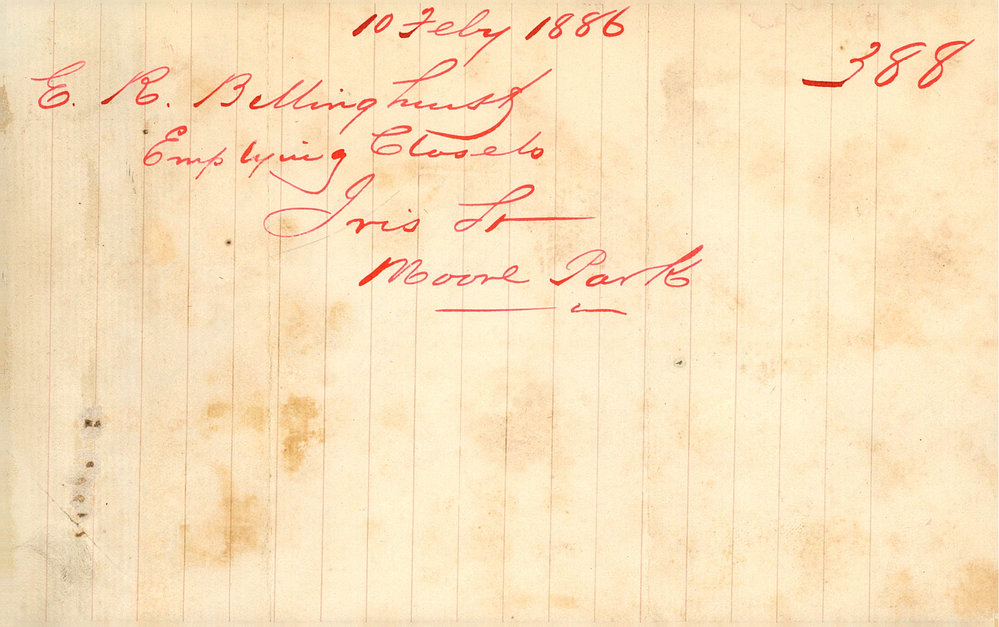 10 Feby 1886
388
E. R. Bellinghurst
Emptying Closets
Iris St
Moore Park